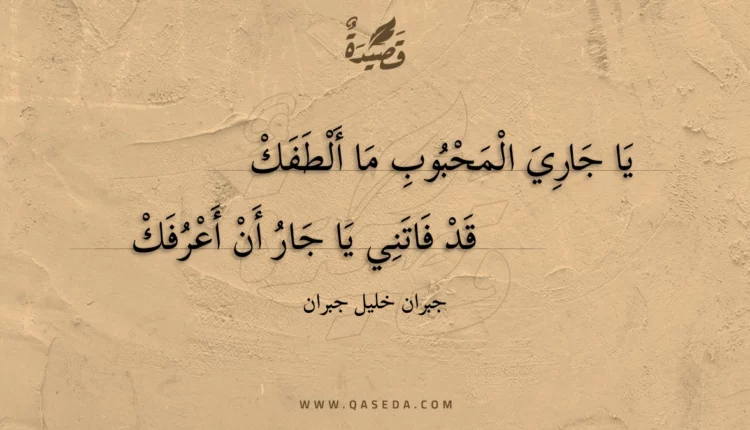 قَصِيدَةٌ
يَا جَارِيَ الْمَحْبُوبِ مَا أَلْطَفَكْ
قَدْ فَاتَنِي يَا جَارُ أَنْ أَعْرُفَكْ
جبران خليل جبران
WWW.QASEDA.COM